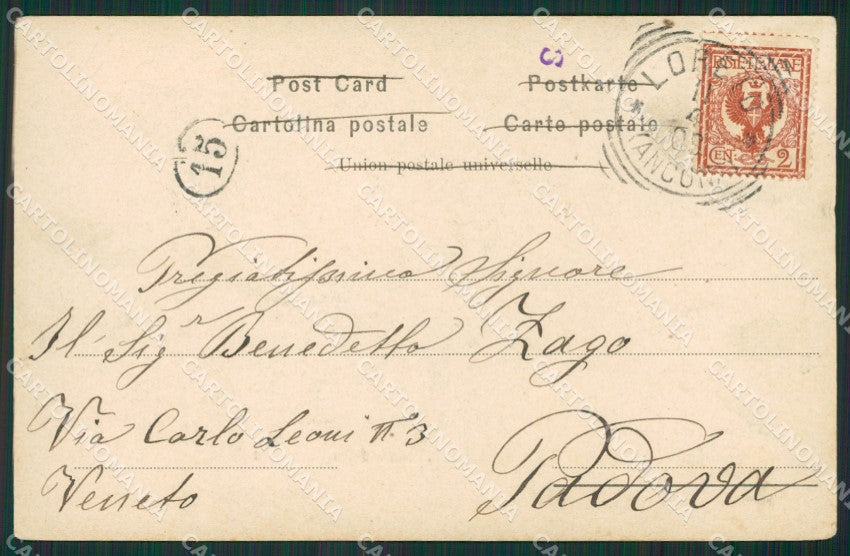 Post Card
Postkarte
Cartolina postale
Carte postale
Union postale universelle
S
15
LORETO
11
03
(ANCONA)
POSTE ITALIANE
CEN. 2
Pregiatissimo Signore
Il Sigr Benedetto Zago
Via Carlo Leoni n.º 3
Padova
Veneto
CARTOLINOMANIA